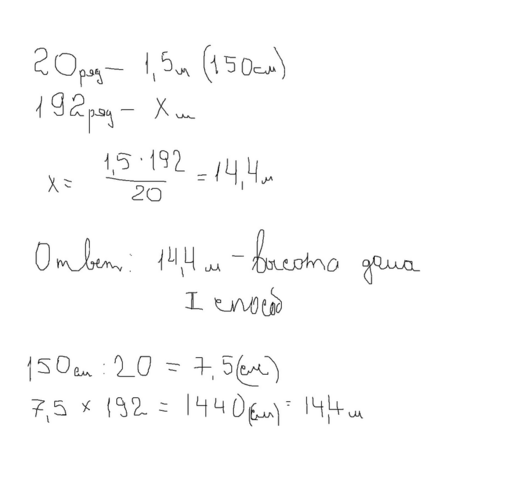 20ряд – 1,5м (150см)
192ряд – x м
x = 1,5 · 192 / 20 = 14,4м
Ответ: 14,4 м – высота дома
I способ
150см : 20 = 7,5(см)
7,5 × 192 = 1440(см) = 14,4 м